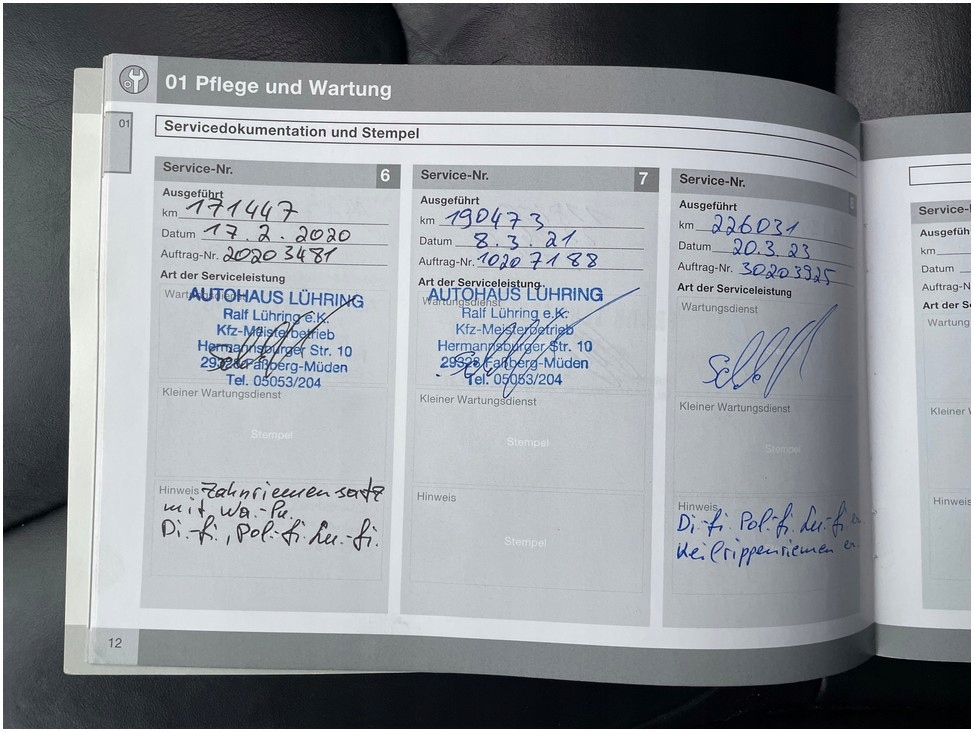 01 Pflege und Wartung
01
Servicedokumentation und Stempel
Service-Nr. 6
Ausgeführt
km 171447
Datum 17.2.2020
Auftrag-Nr. 20203481
Art der Serviceleistung
Wartungsdienst
AUTOHAUS LÜHRING
Ralf Lühring e.K.
Kfz-Meisterbetrieb
Hermannsburger Str. 10
29328 Faßberg-Müden
Tel. 05053/204
Kleiner Wartungsdienst
Stempel
Hinweis Zahnriemensatz
mit Wa.-Pu.
Di.-fi., Pol.-fi. Lu.-fi.
Service-Nr. 7
Ausgeführt
km 190473
Datum 8.3.21
Auftrag-Nr. 10207188
Art der Serviceleistung
Wartungsdienst
AUTOHAUS LÜHRING
Ralf Lühring e.K.
Kfz-Meisterbetrieb
Hermannsburger Str. 10
29328 Faßberg-Müden
Tel. 05053/204
Kleiner Wartungsdienst
Stempel
Hinweis
Stempel
Service-Nr. 8
Ausgeführt
km 226031
Datum 20.3.23
Auftrag-Nr. 30203925
Art der Serviceleistung
Wartungsdienst
Kleiner Wartungsdienst
Stempel
Hinweis
Di.-fi. Pol.-fi. Lu.-fi. er
Keilrippenriemen er.
12
Service-
Ausgefüh
km
Datum
Auftrag-N
Art der S
Wartung
Kleiner
Hinweis